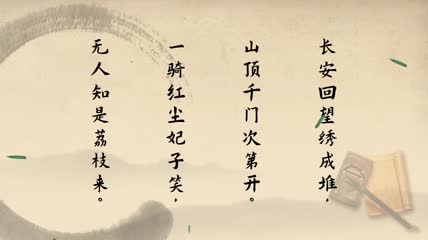 长安回望绣成堆，
山顶千门次第开。
一骑红尘妃子笑，
无人知是荔枝来。